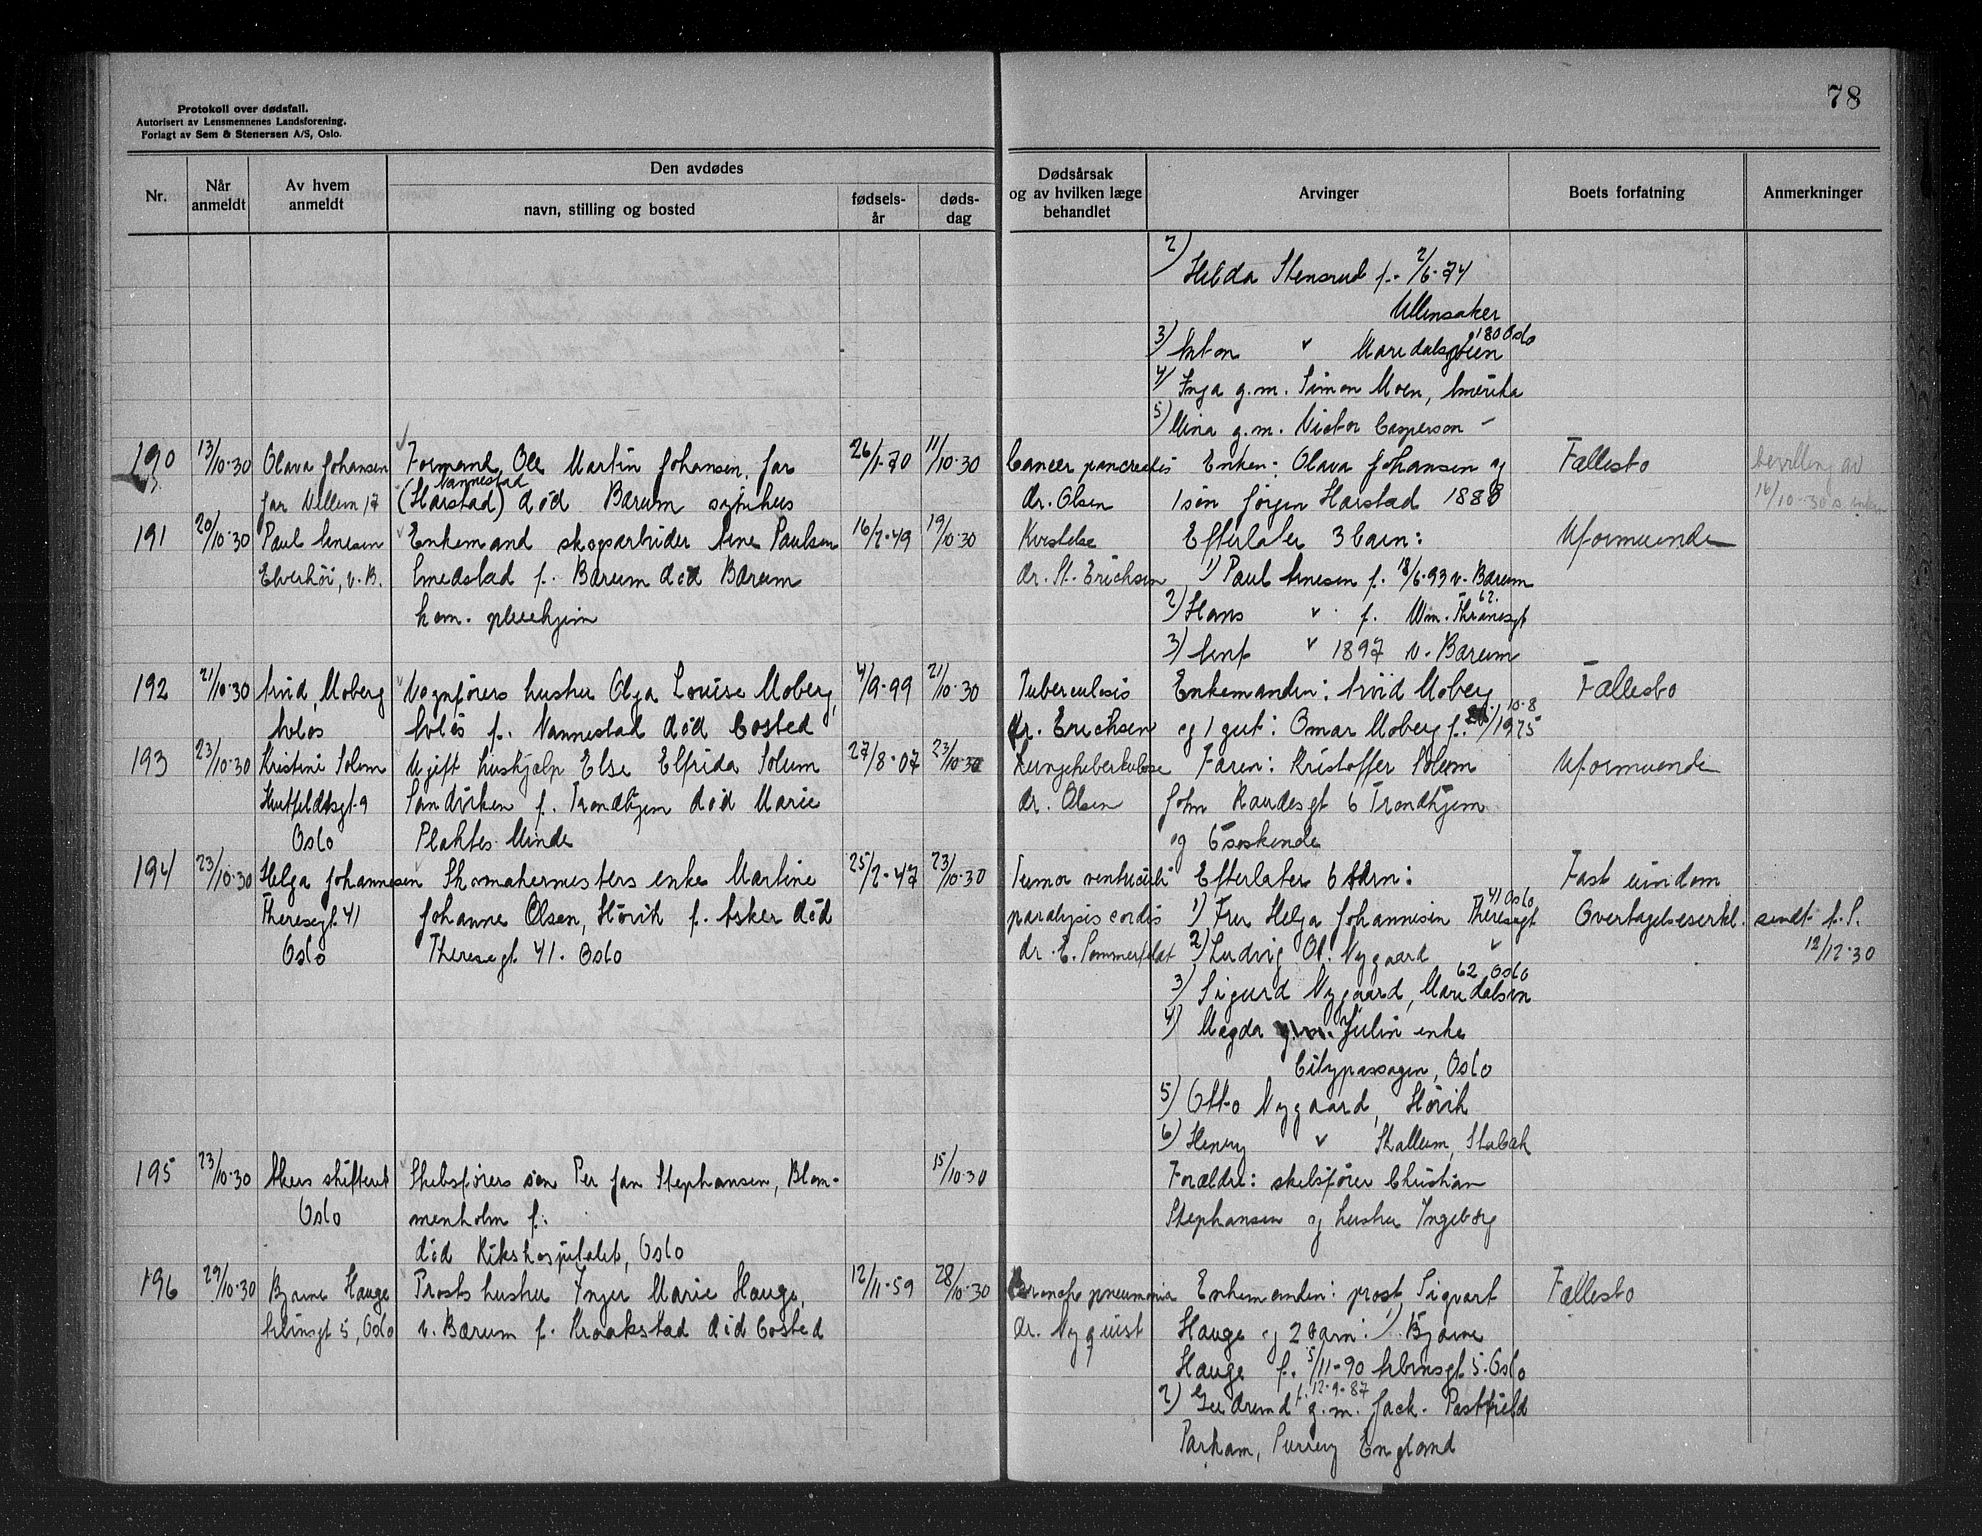 78
Protokoll over dødsfall.
Autorisert av Lensmennenes Landsforening.
Forlagt av Sem & Stenersen A/S, Oslo.
Nr.
Når anmeldt
Av hvem anmeldt
Den avdødes
navn, stilling og bosted
fødsels-år
døds-dag
Dødsårsak og av hvilken læge behandlet
Arvinger
Boets forfatning
Anmerkninger
2) Hilda Stensrud f. 2/6-74
Ullensaker
180 Oslo
3) Anton " Maridalsveien
4) Inga g.m. Simon Moen, Amerika
5) Mina g.m. Victor Casperson -
190 13/10-30 Olava Johansen Formand Ole Martin Johansen, Jar 26/1-70 11/10-30 Cancer pancreatis Enken: Olava Johansen og Fællesbo bevilling av
Nannestad
Jar Villum 17 (Harstad) død Bærum sykehus dr. Olsen 1 søn Jørgen Harstad 1888 16/10-30 s. enken
191 20/10-30 Paul Arnesen Enkemand skogsarbeider Arne Paulsen 16/2-49 19/10-30 Kreftelse Efterlater 3 barn: Uformuende
Elverhøi, v. B. Smedstad f. Bærum død Bærum dr. St. Erichsen 1) Paul Arnesen f. 18/6-93 v. Bærum
62.
kom. pleiehjem 2) Hans " f. Wm. Thranesgt
3) Arnt " 1897 v. Bærum
192 21/10-30 Arvid Moberg Vognførers hustru Olga Louise Moberg, 4/9-99 21/10-30 Tuberculosis Enkemanden: Arvid Moberg Fællesbo
10-8
Avløs Avløs f. Nannestad død bosted dr. Erichsen og 1 gut: Omar Moberg f. /1925
193 23/10-30 Kristine Solum Ugift hushjelp Else Elfrida Solum 27/8-07 23/10-30 Lungetuberkulose Faren: Kristoffer Solum Uformuende
Huitfeldtsgt 9 Sandviken f. Trondhjem død Marie dr. Olsen John Raudesgt 6 Trondhjem
Oslo Plahtes Minde og 6 søskende
194 23/10-30 Helga Johannesen Skomakermesters enke Martine 25/2-47 23/10-30 Tumor ventriculi Efterlater 6 barn: Fast eiendom
41 Oslo
Theresegt 41 Johanne Olsen, Høvik f. Asker død paralysis cordis 1) Fru Helga Johannesen Theresegt Overtagelseserkl. sendt f. S.
Oslo Theresegt 41. Oslo dr. E. Sommerfeldt 2) Ludvig Ol. Nygaard " 12/12-30
62 Oslo
3) Sigurd Nygaard, Maridalsvn
4) Magda g.m. Julin enke
Citypassagen, Oslo
5) Otto Nygaard, Høvik
6) Henry " Skallum, Stabæk
195 23/10-30 Akers skifteret Skibsførers søn Per Jan Stephansen, Blom- 15/10-30 Forældre: skibsfører Christian
Oslo menholm f. Stephansen og hustru Ingeborg
død Rikshospitalet, Oslo
196 29/10-30 Bjarne Hauge Prosts hustru Inger Marie Hauge, 12/11-59 28/10-30 Broncho pneumonia Enkemanden: prost Sigvart Fællesbo
Albinsgt 5, Oslo v. Bærum f. Kraakstad død bosted dr. Nyquist Hauge og 2 barn: 1) Bjarne
Hauge f. 5/11-90 Albinsgt 5. Oslo
f. 12-9-87
2) Gudrund g.m. Jack. Pastfield
Parham, Surrey England